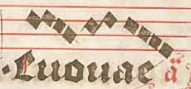 ·Euouae ä